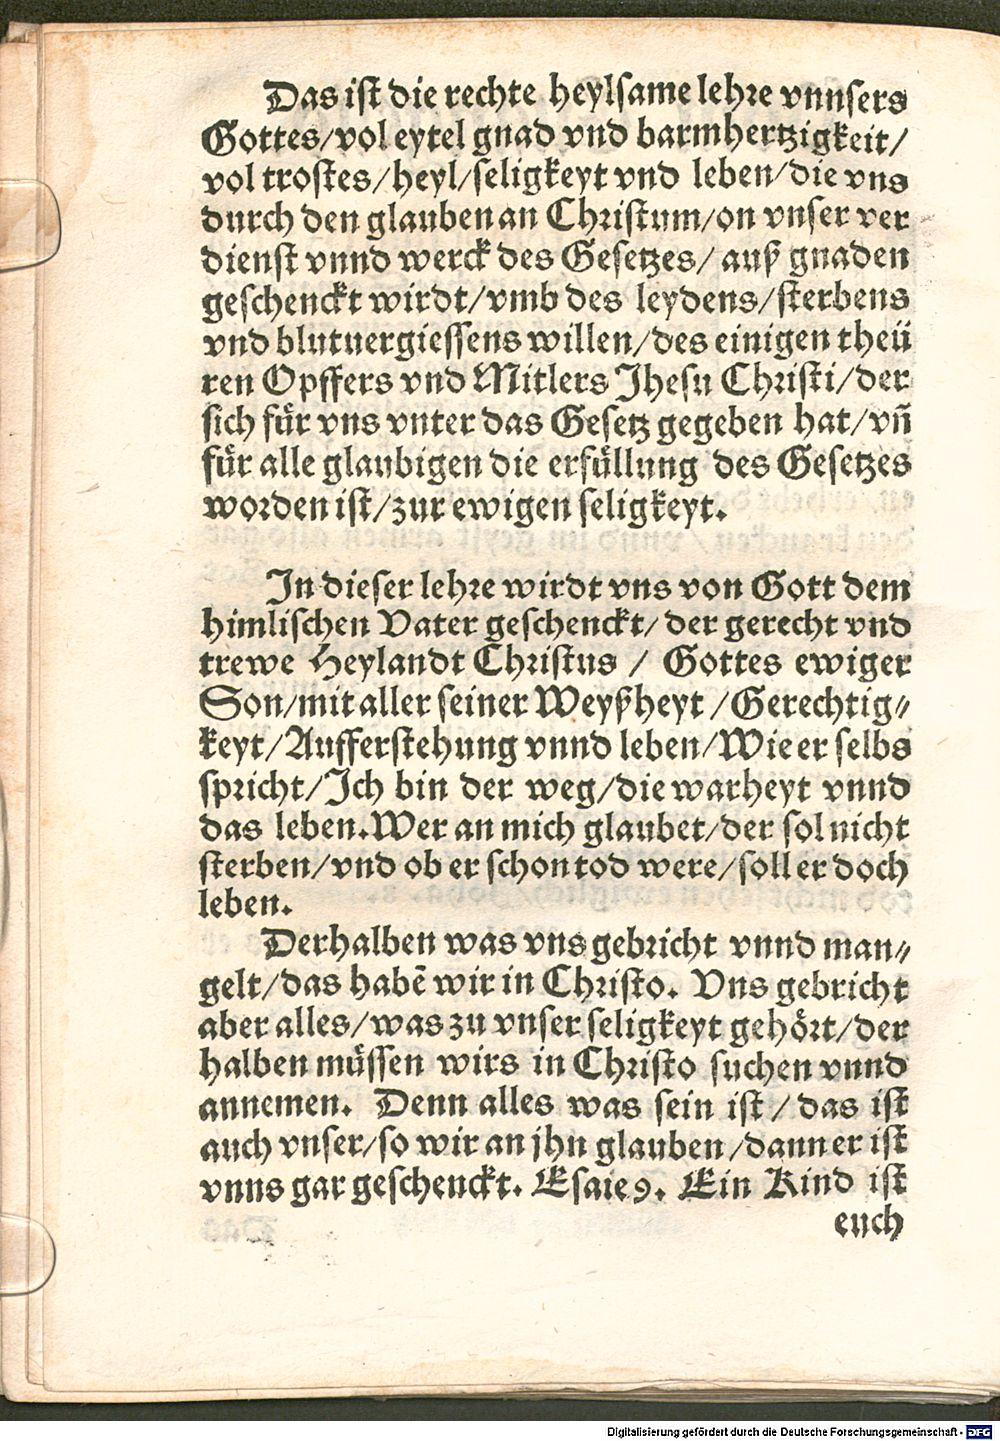 Das ist die rechte heylsame lehre vnnsers
Gottes/vol eytel gnad vnd barmhertzigkeit/
vol trostes/heyl/seligkeyt vnd leben/die vns
durch den glauben an Christum/on vnser ver
dienst vnnd werck des Gesetzes/ auß gnaden
geschenckt wirdt/vmb des leydens/sterbens
vnd blutuergiessens willen/des einigen theü
ren Opffers vnd Mitlers Jhesu Christi/der
sich für vns vnter das Gesetz gegeben hat/vñ
für alle glaubigen die erfüllung des Gesetzes
worden ist/zur ewigen seligkeyt.
In dieser lehre wirdt vns von Gott dem
himlischen Vater geschenckt/ der gerecht vnd
trewe Heylandt Christus / Gottes ewiger
Son/mit aller seiner Weyßheyt /Gerechtig⸗
keyt/Aufferstehung vnnd leben/Wie er selbs
spricht/Ich bin der weg/die warheyt vnnd
das leben.Wer an mich glaubet/der sol nicht
sterben/vnd ob er schon tod were/soll er doch
leben.
Derhalben was vns gebricht vnnd man⸗
gelt/das habē wir in Christo. Vns gebricht
aber alles/was zu vnser seligkeyt gehört/der
halben müssen wirs in Christo suchen vnnd
annemen. Denn alles was sein ist / das ist
auch vnser/so wir an jhn glauben/dann er ist
vnns gar geschenckt. Esaie 9. Ein Kind ist
euch
Digitalisierung gefördert durch die Deutsche Forschungsgemeinschaft - DFG